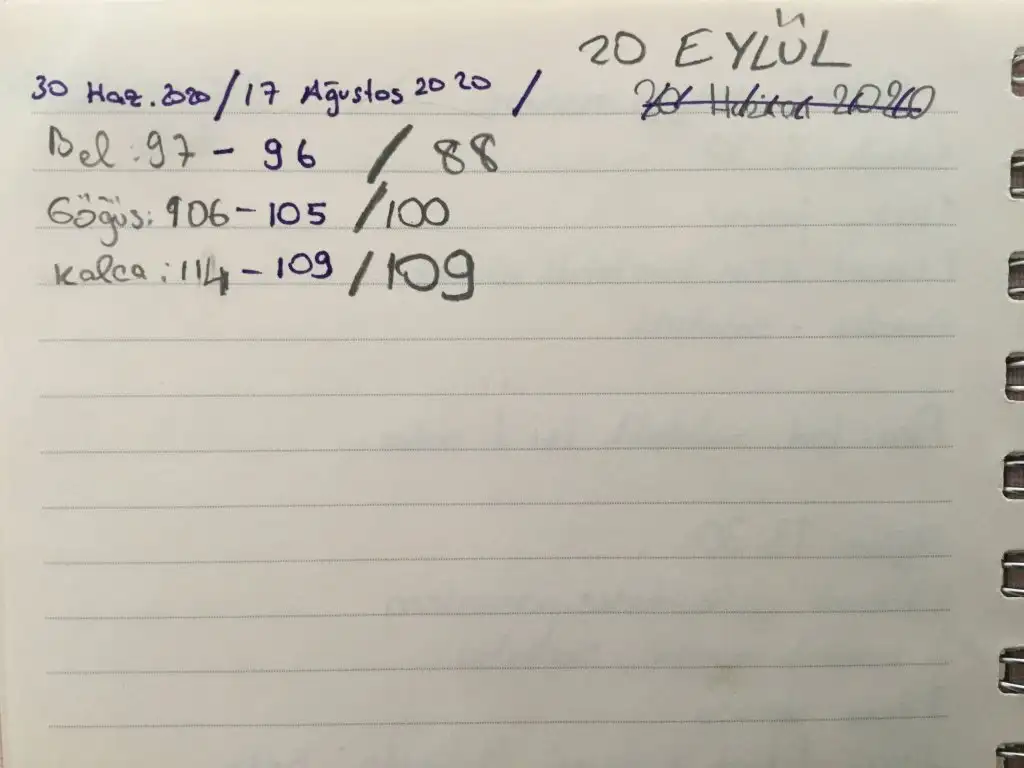 20 EYLÜL
30 Haz. 2020 / 17 Ağustos 2020 /
Bel : 97 - 96 / 88
Göğüs : 106 - 105 / 100
Kalca : 114 - 109 / 109